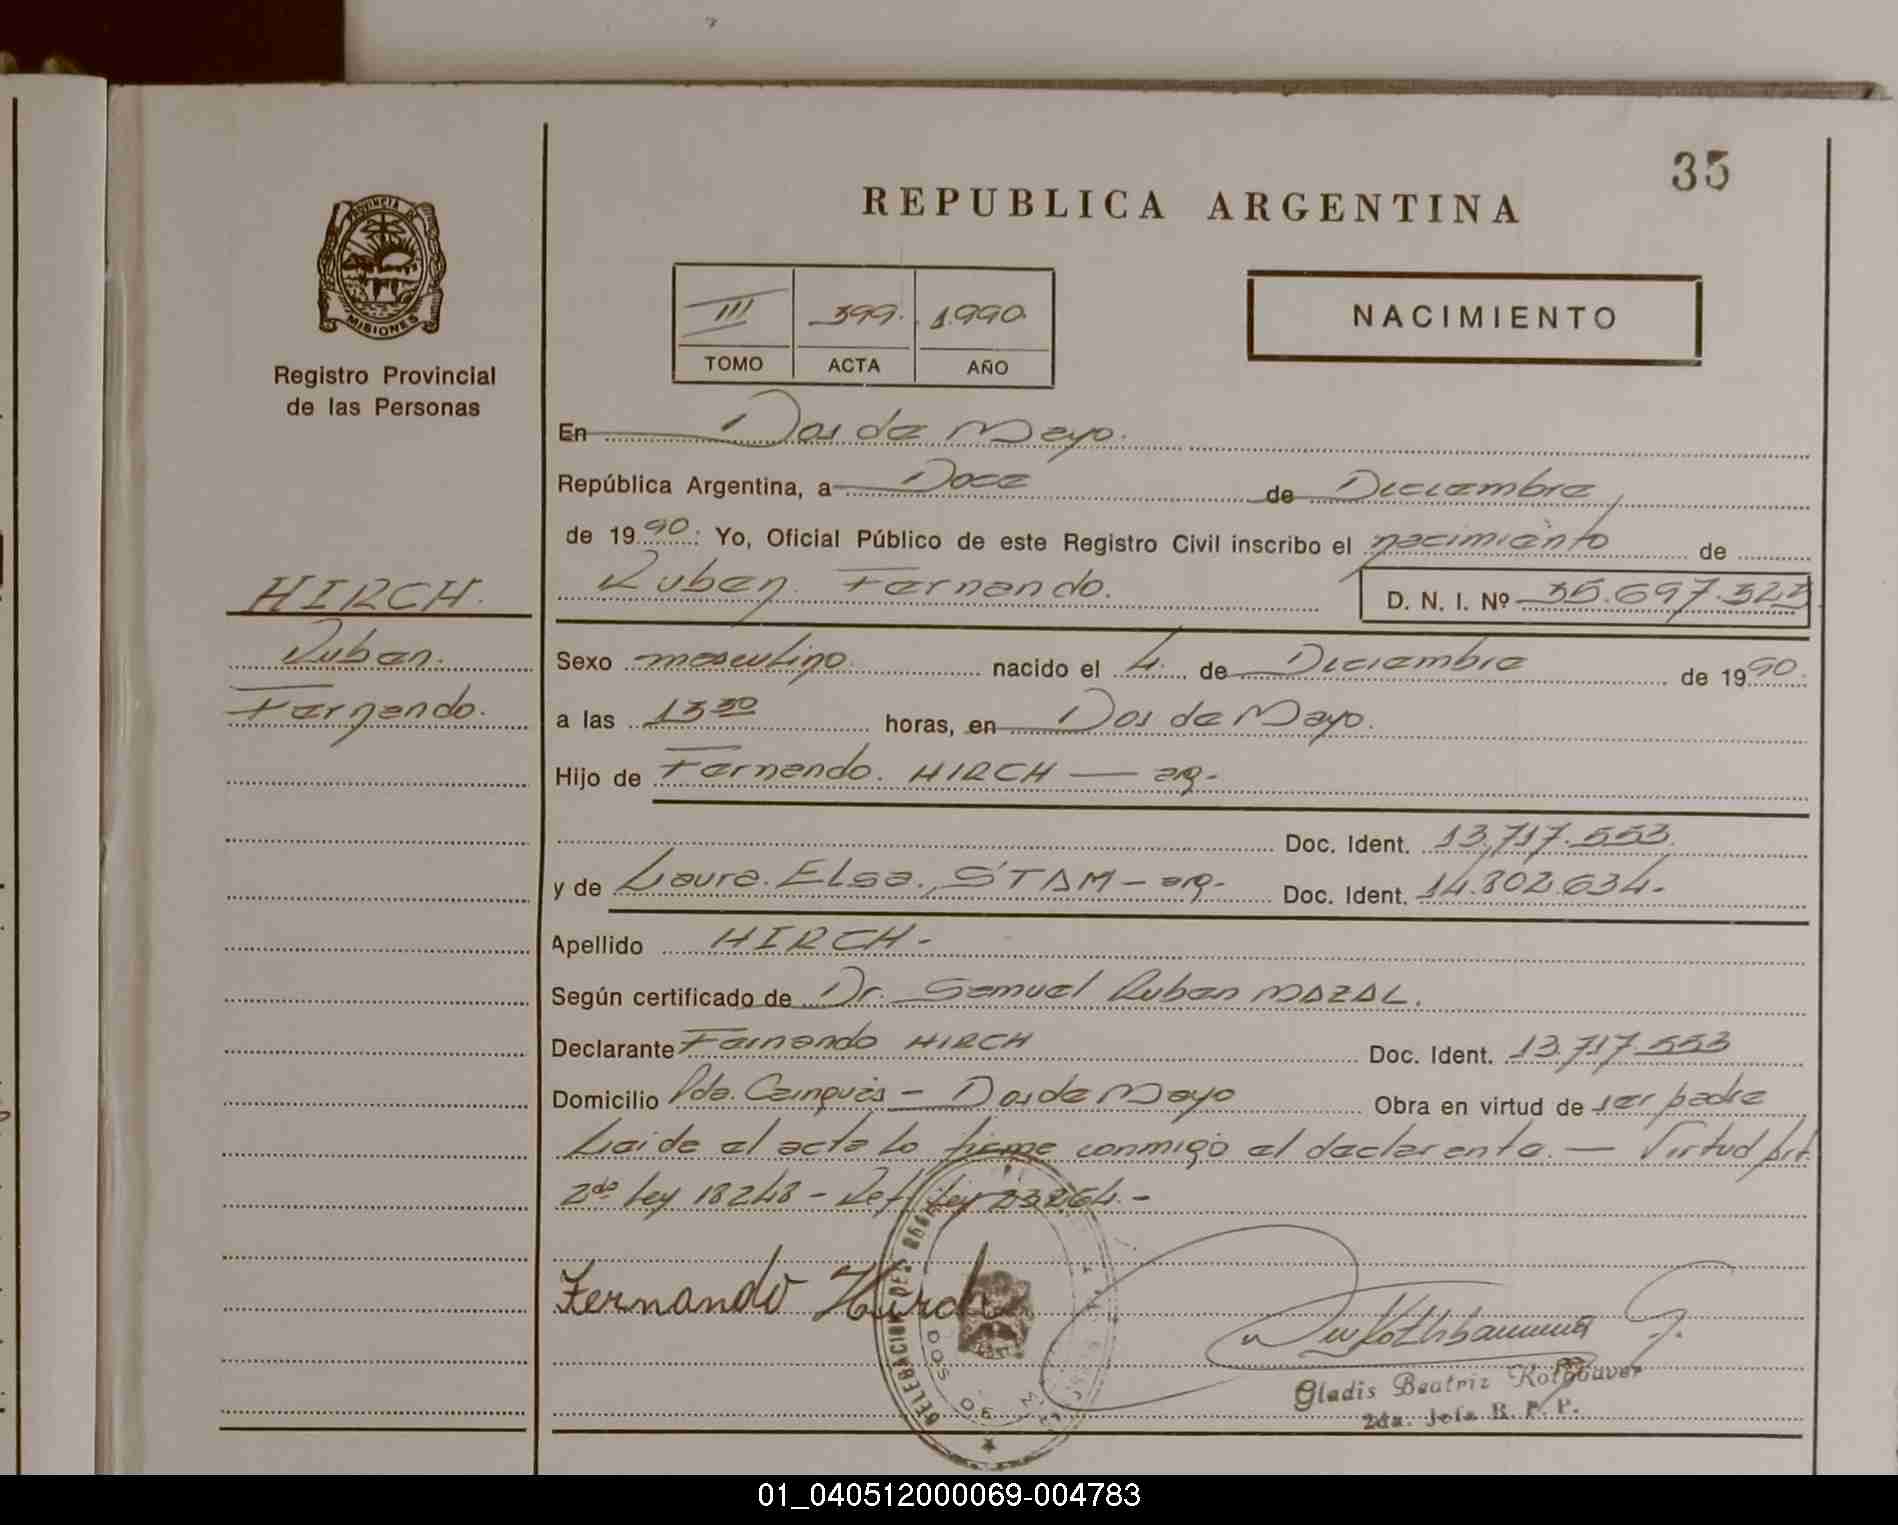 35
REPUBLICA ARGENTINA
PROVINCIA DE
MISIONES
Registro Provincial
de las Personas
III 399. 1.990.
TOMO ACTA AÑO
NACIMIENTO
En Dos de Mayo.
República Argentina, a Doce de Diciembre
de 1990: Yo, Oficial Público de este Registro Civil inscribo el nacimiento de
Ruben Fernando. D. N. I. Nº 35.697.323
HIRCH.
Ruben.
Fernando.
Sexo masculino. nacido el 4 de Diciembre de 1990.
a las 13 30 horas, en Dos de Mayo.
Hijo de Fernando. HIRCH — arg.
Doc. Ident. 13.717.553
y de Laura. Elsa. STAM - arg. Doc. Ident. 14.802.634.
Apellido HIRCH -
Según certificado de Dr. Samuel Ruben MAZAL.
Declarante Fernando HIRCH Doc. Ident. 13.717.553
Domicilio Pda. - Dos de Mayo Obra en virtud de ser padre
Leida el acta lo firma conmigo el declarante. — Virtud Art.
2do Ley 18248 - Ref. Ley 23264. -
Fernando Hirch
DOS DE MAYO
Gladis Beatriz Kothbauer
2da. Jefa R. P. P.
01_040512000069-004783